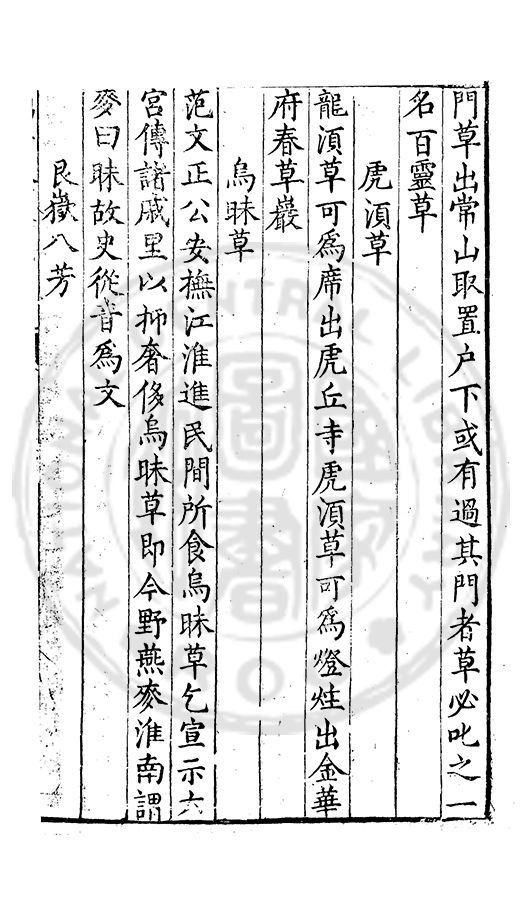 門草出常山取置户下或有過其門者草必叱之一
名百靈草
虎湏草
龍湏草可爲席出虎丘寺虎湏草可爲燈炷出金華
府春草巖
烏昧草
范文正公安撫江淮進民間所食烏昧草乞宣示六
宮傳諸戚里以抑奢侈烏昧草即今野燕麥淮南謂
麥曰昧故史從音爲文
艮嶽八芳